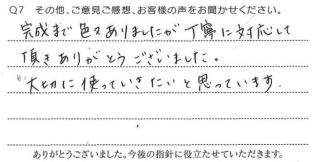 Q7 その他、ご意見ご感想、お客様の声をお聞かせください。
完成まで色々ありましたが丁寧に対応して
頂きありがとうございました。
大切に使っていきたいと思っています。
ありがとうございました。今後の指針に役立たせていただきます。